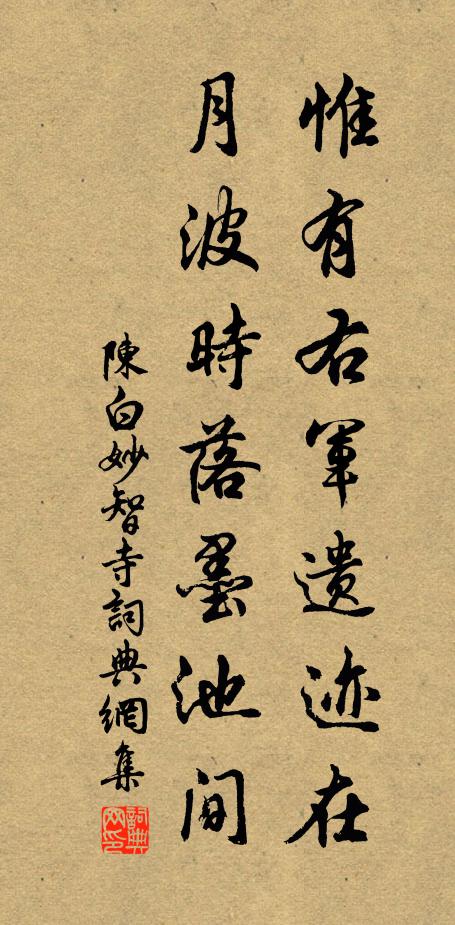 惟有右軍遺迹在
月波時落墨池間
陳白妙智寺詞典網集
詞典网印